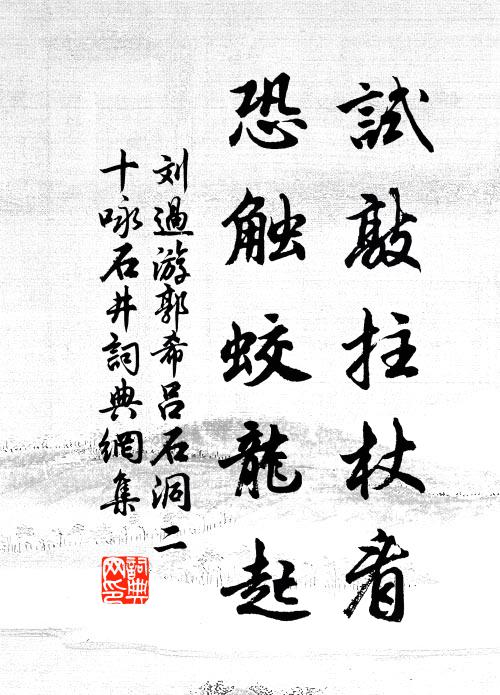 試敲拄杖看
恐触蛟龍起
刘過游郭希吕石洞二
十咏石井詞典網集
詞典
网印